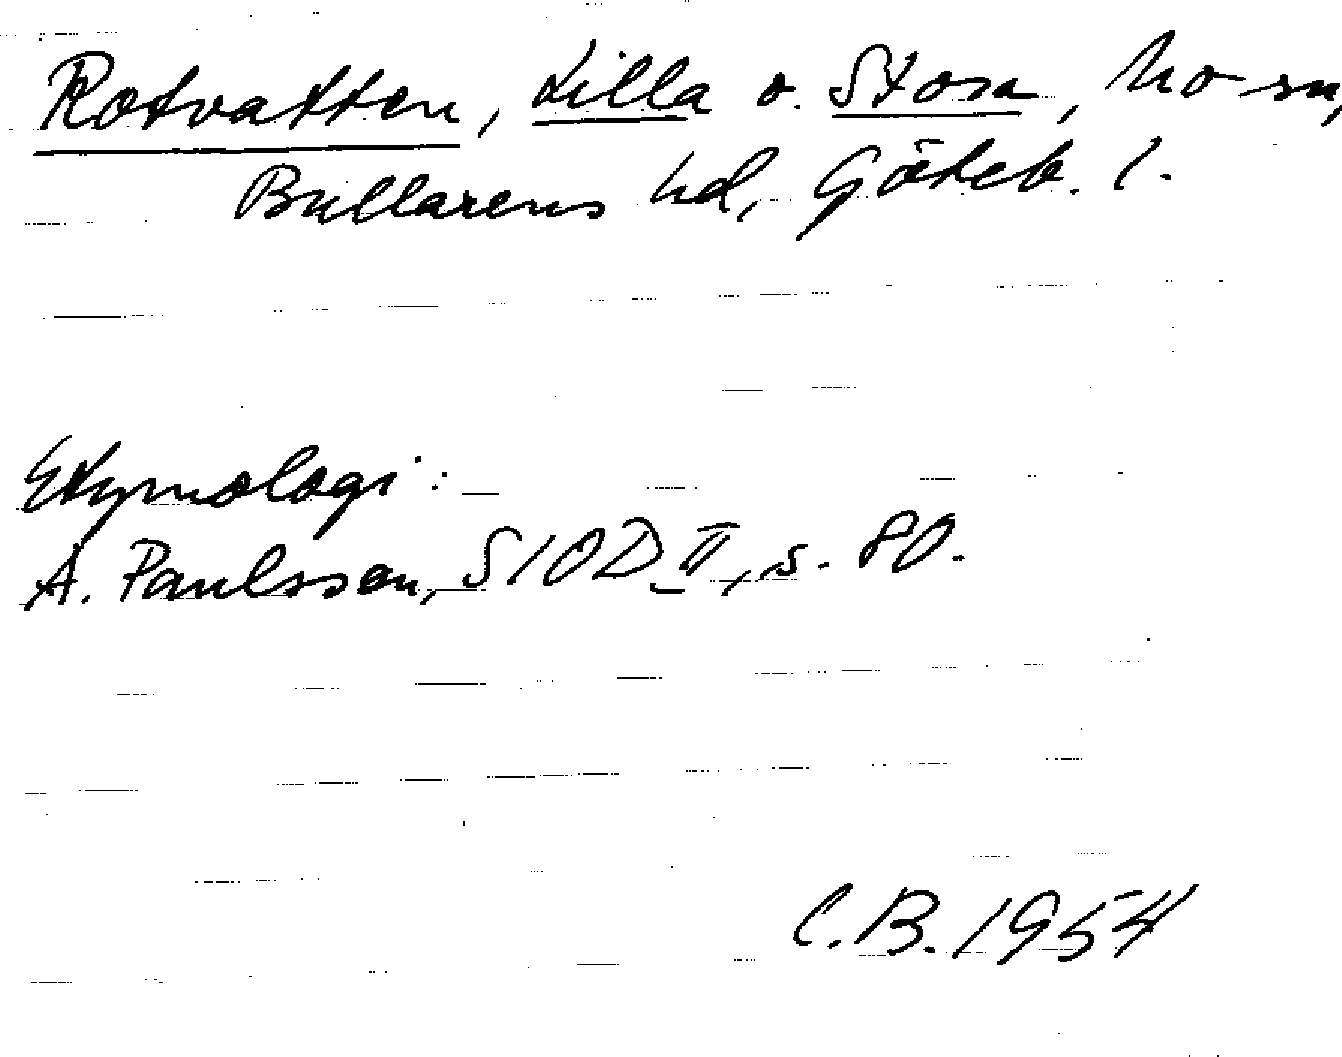 Rotvatten, Lilla o. Stora, Mo sn,
Bullarens hd, Göteb. l.
Etymologi:
A. Paulsson, SIOD II, s. 80.
C.B. 1954